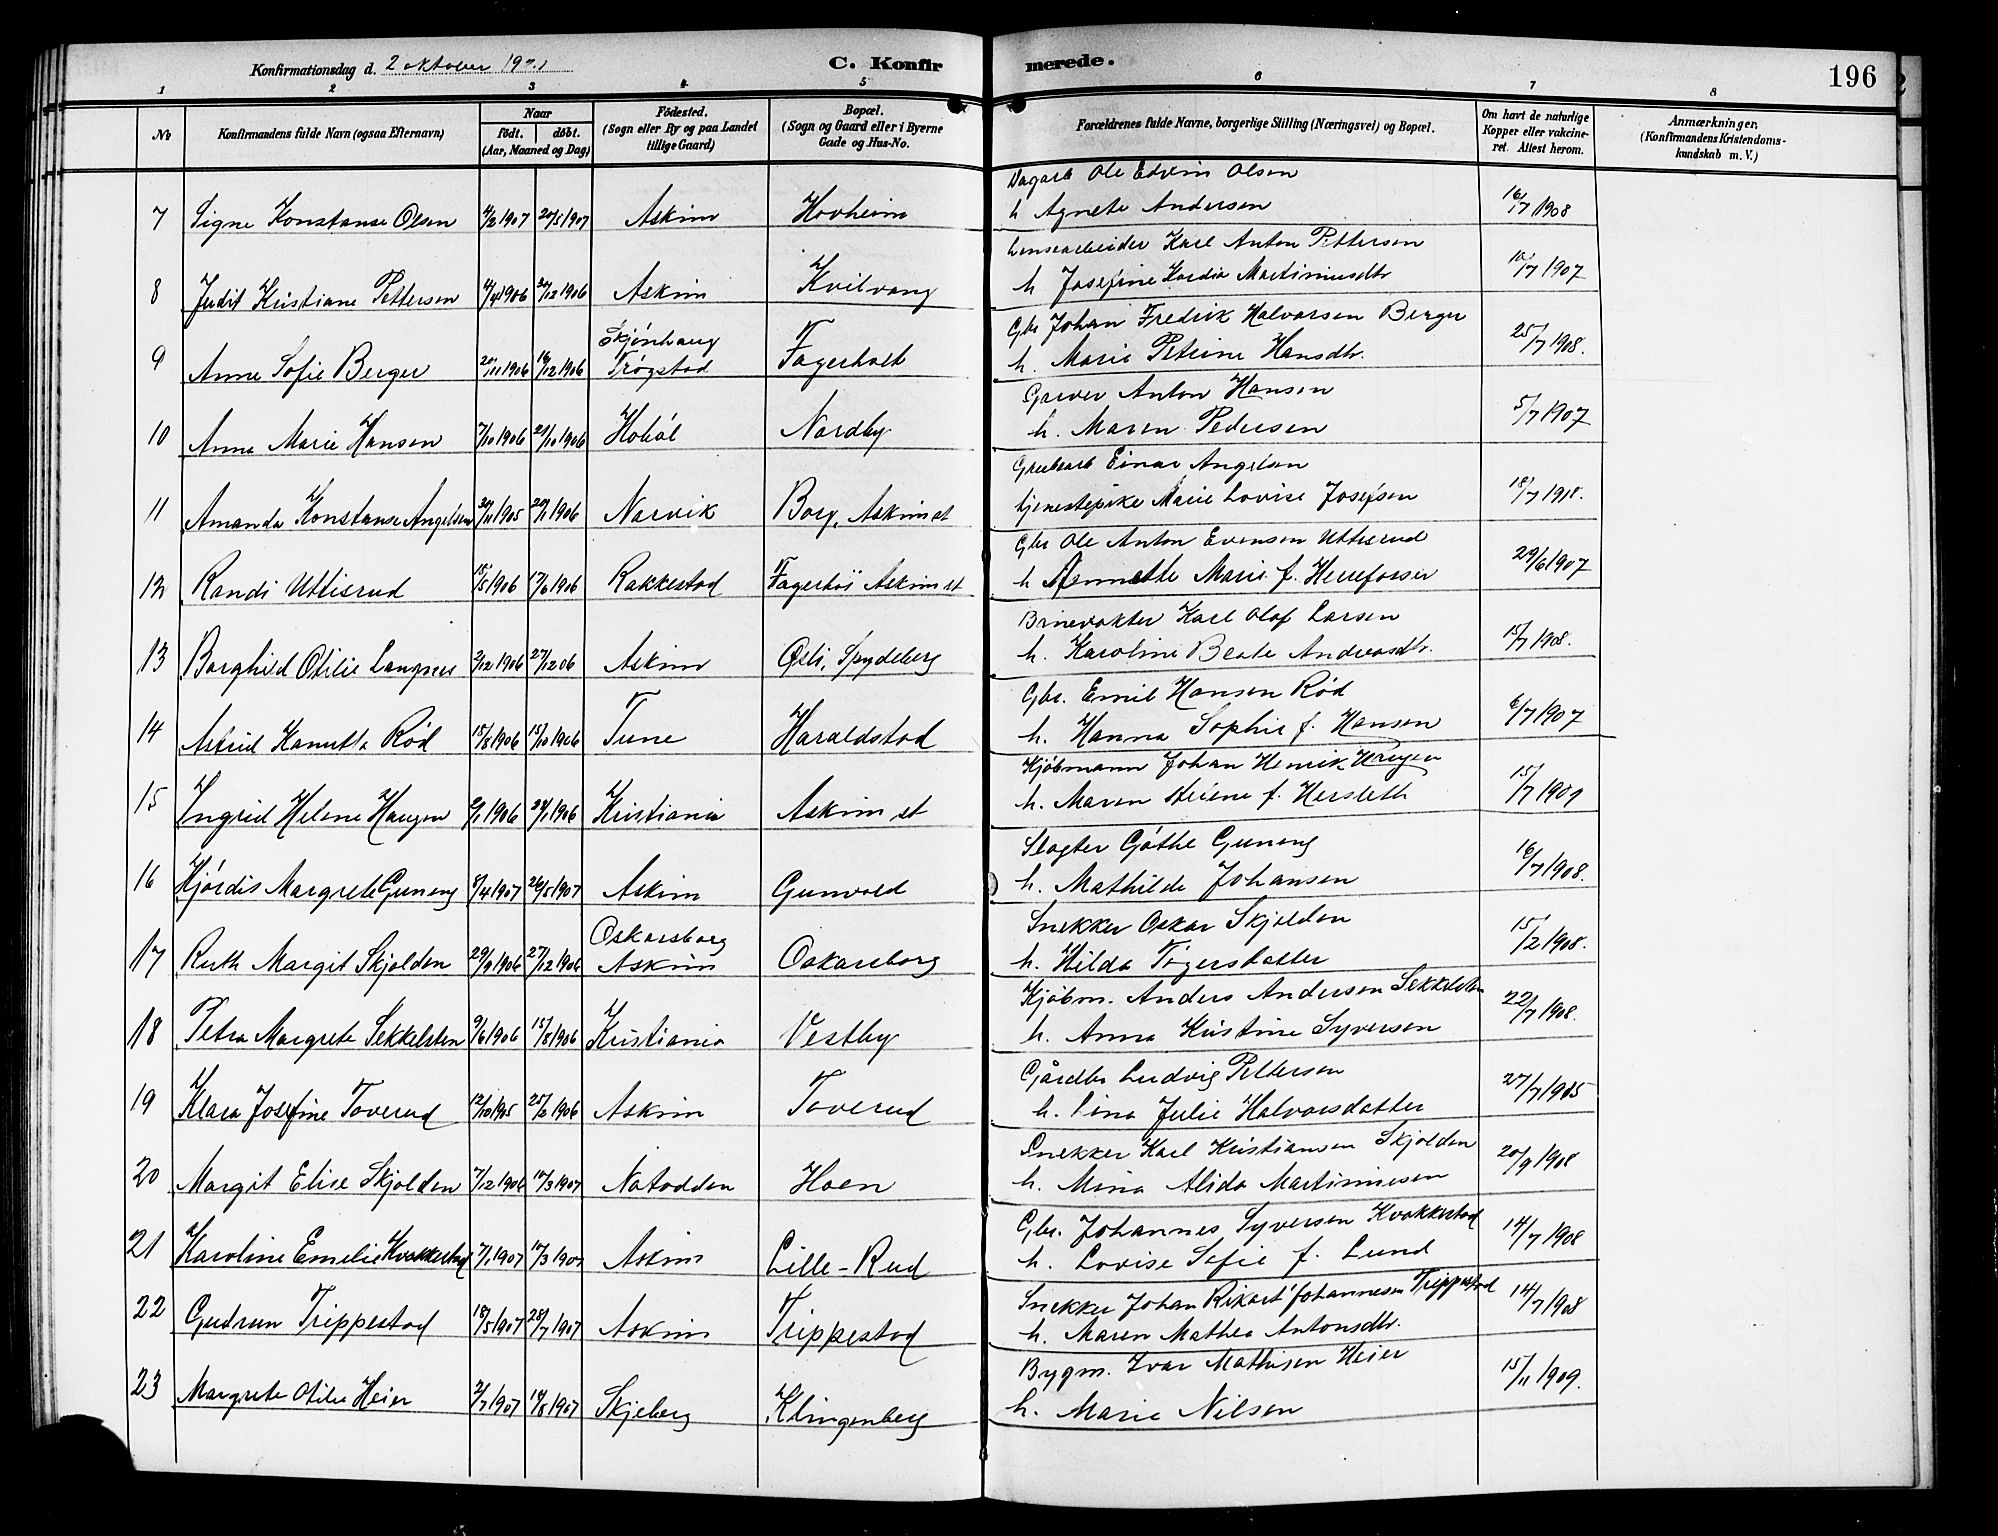 Konfirmationsdag d. 2 oktober 1921
C. Konfir merede.
196
1 2 3 4 5 6 7 8
No
Konfirmandens fulde Navn (ogsaa Efternavn)
Naar
födt. döbt.
(Aar, Maaned og Dag)
Födested.
(Sogn eller By og paa Landet
tillige Gaard)
Bopæl.
(Sogn og Gaard eller i Byerne
Gade og Hus-No.
Forældrenes fulde Navne, borgerlige Stilling (Næringsvei) og Bopæl.
Om havt de naturlige
Kopper eller vakcine-
ret. Attest herom.
Anmærkninger,
(Konfirmandens Kristendoms-
kundskab m. V.)
Dagarb Ole Edvin Olsen
7 Signe Konstanse Olsen 4/2 1907 20/5 1907 Askim Hovheim h Agnete Andersen 16/7 1908
Lensearbeider Karl Anton Pettersen
8 Judit Kristiane Pettersen 4/4 1906 26/12 1906 Askim Kvilvang h Josefine Kardia Martiniusdtr 10/7 1907
Skjønhaug Gbr Johan Fredrik Halvorsen Berger
9 Anne Sofie Berger 20/11 1906 16/12 1906 Trøgstad Fagerholt h. Marie Petrine Hansdtr. 25/7 1908.
Garver Anton Hansen
10 Anna Marie Hansen 7/10 1906 21/10 1906 Hobøl Nordby h. Maren Pedersen 5/7 1907
Grubearb Einar Angelsen
11 Amanda Konstanse Angelsen 30/11 1905 20/1 1906 Narvik Borg, Askim st tjenestepike Marie Lovise Josefsen 18/7 1918.
Gbr Ole Anton Evensen Uttisrud
12 Randi Uttisrud 15/5 1906 17/6 1906 Rakkestad Fagerhøi Askim st h Annette Marie f. Herreforsen 29/6 1907
Brinevakter Karl Olaf Larsen
13 Borghild Otilie Langsen 3/12 1906 27/12 06 Askim Østi, Spydeberg h. Karoline Beate Andreasdtr. 15/7 1908.
Gbr. Emil Hansen Rød
14 Astrid Kamitta Rød 15/8 1906 15/10 1906 Tune Haraldstad h. Hanna Sophie f. Hansen 6/7 1907
Kjøbmann Johan Henrik Haugen
15 Ingrid Helene Haugen 2/1 1906 24/1 1906 Kristiania Askim st h. Maren Helene f. Hersleth 15/7 1909
Slagter Gøthe Guneng
16 Hjørdis Margrete Guneng 8/4 1907 26/5 1907 Askim Gunvold h. Mathilde Johansen 16/7 1908.
Oskarsborg Snekker Oskar Skjolden
17 Ruth Margit Skjolden 29/9 1906 27/12 1906 Askim Oskarsborg h. Hilda Tøgersdatter 15/2 1908.
Kjøbm. Anders Andersen Sekkelsten
18 Petra Margrete Sekkelsten 9/6 1906 15/8 1906 Kristiania Vestby h. Anna Kristine Syversen 22/7 1908.
Gårdbr Ludvig Pettersen
19 Klara Josefine Toverud 12/10 1905 25/2 1906 Askim Toverud h. Lina Julie Halvorsdatter 27/7 1905
Snekker Karl Kristiansen Skjolden
20 Margit Elise Skjolden 7/12 1906 17/3 1907 Notodden Hoen h. Mina Alida Martiniusen 20/9 1908
Gbr. Johannes Syversen Kvakkestad
21 Karoline Emelie Kvakkestad 7/1 1907 17/3 1907 Askim Lille-Rud h. Lovise Sofie f. Lund 14/7 1908
Snekker Johan Rikart Johannesen Trippestad
22 Gudrun Trippestad 18/5 1907 28/7 1907 Askim Trippestad h. Maren Mathea Antonsdtr. 14/7 1908
Bygm. Ivar Mathisen Heier
23 Margrete Otilie Heier 2/7 1907 14/8 1907 Skjeberg Klingenberg h. Marie Nilsen 15/11 1909.